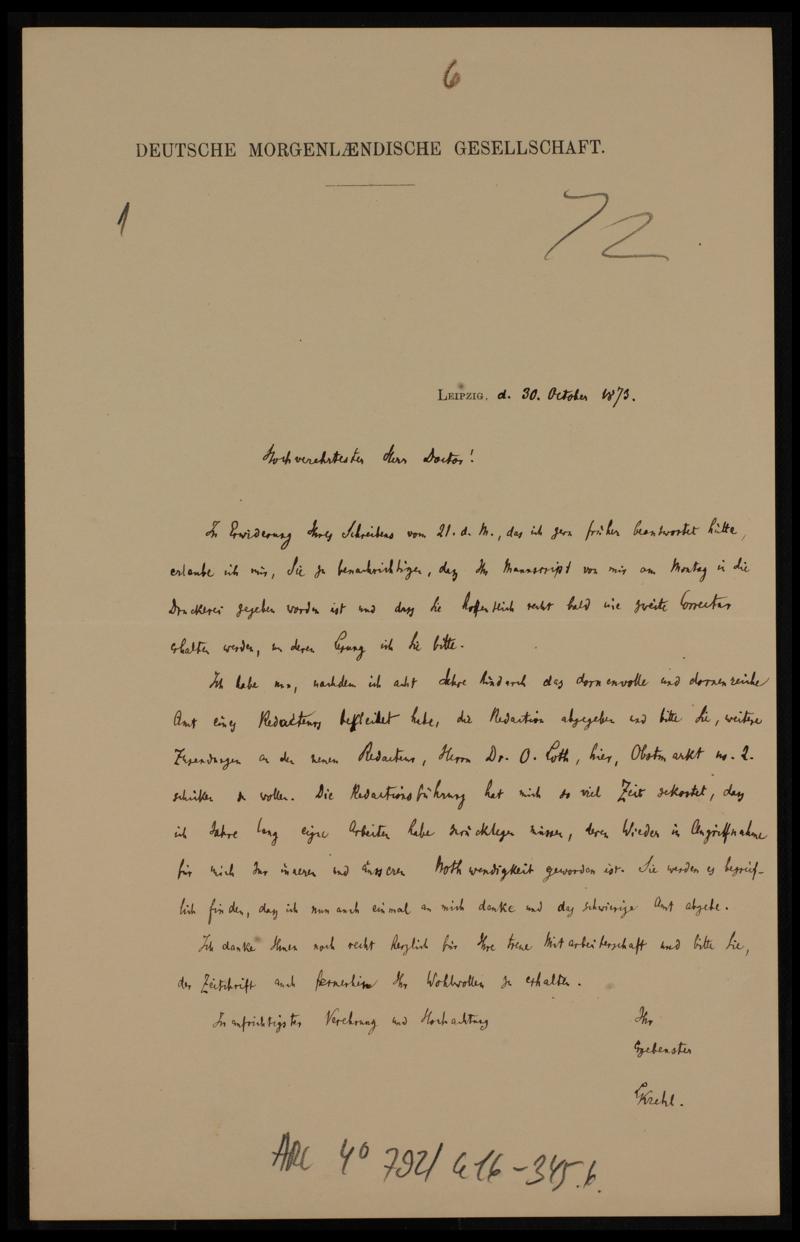 6
DEUTSCHE MORGENLÆNDISCHE GESELLSCHAFT.
1
72
LEIPZIG, d. 30. October 1873.
Hochverehrtester Herr Doctor!
In Erwiderung Ihres Schreibens vom 21. d. M., das ich gern früher beantwortet hätte,
erlaube ich mir, Sie zu benachrichtigen, daß Ihr Manuscript von mir am Montag in die
Druckerei gegeben worden ist und daß Sie hoffentlich recht bald die zweite Correctur
erhalten werden, um deren Lesung ich Sie bitte.
Ich habe nun, nachdem ich acht Jahre hindurch das dornenvolle und dornenreiche
Amt eines Redacteurs bekleidet habe, die Redaction abgegeben und bitte Sie, weitere
Zusendungen an den neuen Redacteur, Herrn Dr. O. Loth, hier, Obstmarkt no. 2.
schicken zu wollen. Die Redactionsführung hat mich so viel Zeit gekostet, daß
ich Jahre lang eigne Arbeiten habe zurücklegen müssen, deren Wieder in Angriffnahme
für mich zur inneren und äusseren Nothwendigkeit geworden ist. Sie werden es begreif-
lich finden, daß ich nun auch einmal an mich denke und das schwierige Amt abgebe.
Ich danke Ihnen noch recht herzlich für Ihre treue Mitarbeiterschaft und bitte Sie,
der Zeitschrift auch fernerhin Ihr Wohlwollen zu erhalten.
In aufrichtigster Verehrung und Hochachtung
Ihr
Ergebenster
LKrehl.
ARC 4° 792/ G16-345.b.